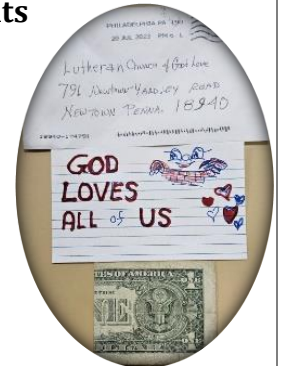 ts
PHILADELPHIA PA 191
20 JUL 2022 PM 6 L
Lutheran Church of God Love
791 Newtown YARDLEY ROAD
NEWTOWN PENNA. 18940
GOD
LOVES
ALL of US
TES OF AMERICA
ONE